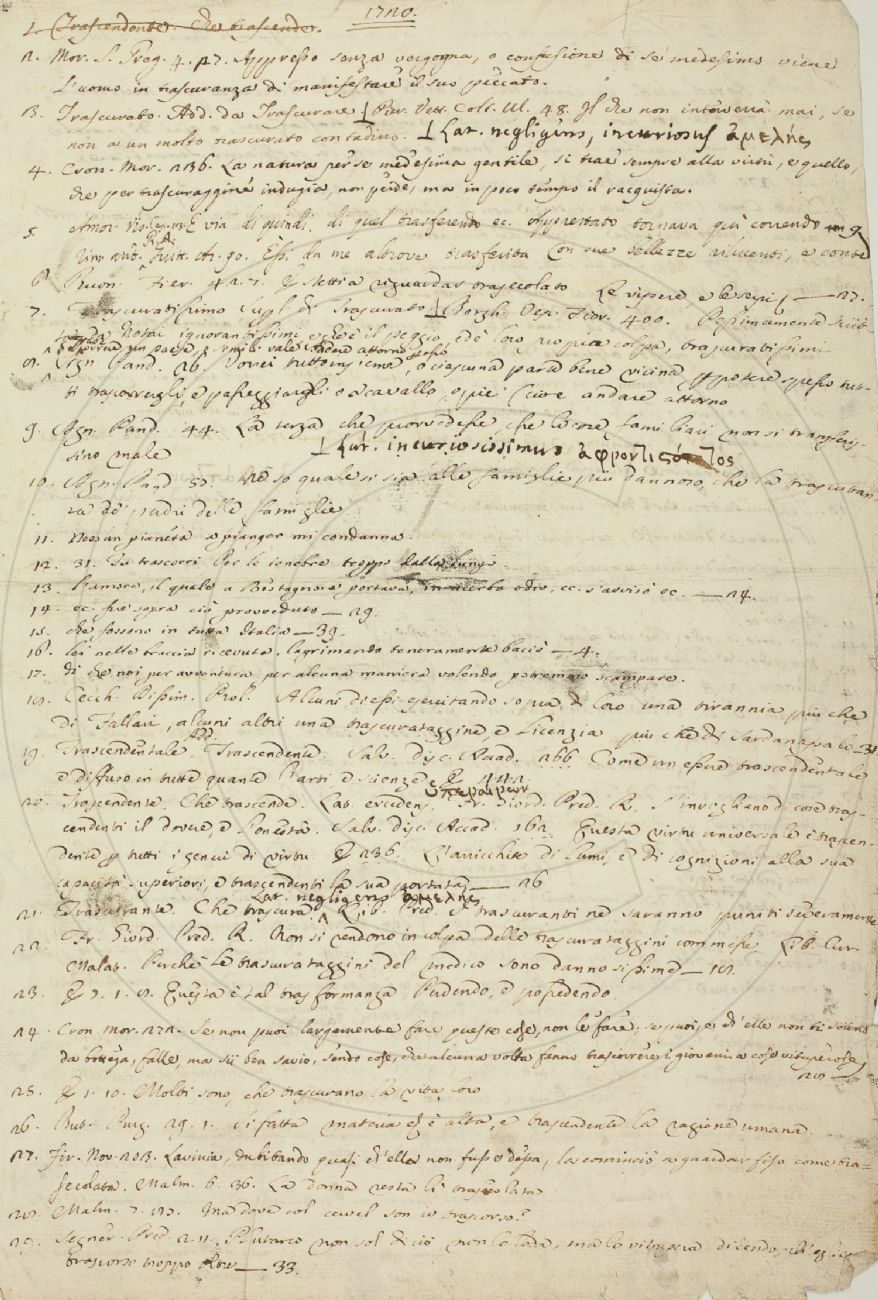 1720.
1. Trascendente. Che trascende.
2. Mor. S. Greg. 4. 27. Appresso senza vergogna, o confusione di se medesimo viene
l'uomo in trascuranza di manifestare il suo peccato.
3. Trascurato. Add. da Trascurare Pier. Vett. Colt. Ul. 48. Il che non interverrà mai, se
non a un molto trascurato contadino. Lat. negligens, incuriosus ἀμελής
4. Cron. Mor. 236. La natura per se medesima gentile, si trae sempre alla virtù, e quello,
che per trascuraggine indugia, non perde, ma in poco tempo il racquista.
5. E via di quindi di quel trasferendo ec. tornava già correndo
Rim. ant. Guitt. Ar. 90. Essi da me altrove trasferita Con sue bellezze rilucenti, e conte
6. Buon. Fier. 4. 2. 7. E stettia riguardar trasecolato Le vipere e le serpi, — 27.
7. Trascuratissimo Supl. di Trascurato Borgh. Vesc. Fior. 400. Pessimamente
Notai ignorantissimi, e che è il peggio, ed è loro propria colpa, trascuratissimi
8. Agn. Pand. 26. Vorrei tutto insieme, o ciascuna parte bene vicina, per potere spesso tut-
ti trascorrergli, e passeggiargli o a cavallo, o piè
9. Agn. Pand. 44. La terza che provvedesse che le cose famigliari non si trasferis-
sino male
Lat. incuriosissimus ἀφροντιςότατος
10. Agn. Pand. 50. Nè so quale si sia alle famiglie più dannoso, che la trascuran-
za de' padri delle famiglie
11. Neos un pianeta a pianger mi condanna.
12. 31. Tu trascorri Per le tenebre troppo dalla lungi.
13. l'amore, il quale a Bestagnone portava, in acerbo odio, ec. s'avvisò ec. — 24.
14. ec. fue sopra ciò provveduto — 29.
15. che fossono in tutta Italia — 39.
16. lei nelle braccia ricevuta, lagrimando teneramente baciò — 4.
17. di che noi per avventura per alcuna maniera volendo potremmo scampare.
18. Cecch. Dissim. Prol. Alcuni di essi esercitando sopra di loro una tirannia più che
di Fallari, alcuni altri una trascurataggine, e licenzia più che di Sardanapalo — 31
19. Trascendentale. Add. Trascendente. Salv. disc. Accad. 266. Come un essere trascendentale
e diffuso in tutte quante l'arti e scienze E 442.
ὑπεραίρων
20. Trascendente. Che trascende. Lat. excedens. Fr. Giord. Pred. R. S'invogliano di cose tras-
cendenti il dovere, e l'onestà. Salv. disc. Accad. 162. Questa virtù universale è trascen-
dente per tutti i generi di virtù. E 236. L'arricchite di lumi, e di cognizioni alla sua
capacità superiori, e trascendenti la sua portata, — 26
Lat. negligens ἀμελής
21. Trascurante. Che trascura. Pred. I trascuranti ne saranno puniti severamente
22. Fr. Giord. Pred. R. Non si rendono in colpa delle trascurataggini commesse. Lib. Cur.
Malat. Perchè le trascurataggini del medico sono dannosissime — 18.
23. E 2. 1. 8. Questa è tal trasformanza Perdendo, e possedendo.
24. Cron. Mor. 272. Se non puoi largamente fare queste cose, non le fare; se puoi, e ch'elle non ti sieno
da bottega, falle, ma sii ben savio, sendo cose, che alcuna volta fanno trascorrere i giovani a cose vituperose,
28 —
25. E 1. 10. Molti sono, che trascurano la vita loro
26. But. Purg. 29. 1. Sì fatta materia ch'è alta, e trascendente la ragione umana.
27. Fir. Nov. 203. Lavinia, dubitando quasi ch'ella non fusse dessa, la cominciò a guardar fiso come tra-
secolata. Malm. 6. 36. La donna resta lì trasecolata
28. Malm. 7. 87. Ma dove col cervel son io trascorso?
29. Segner. Pred. 2. 11. Plutarco non sol di ciò non lo loda, ma lo vitupera dicendo,
trascorso troppo oltre — 33.